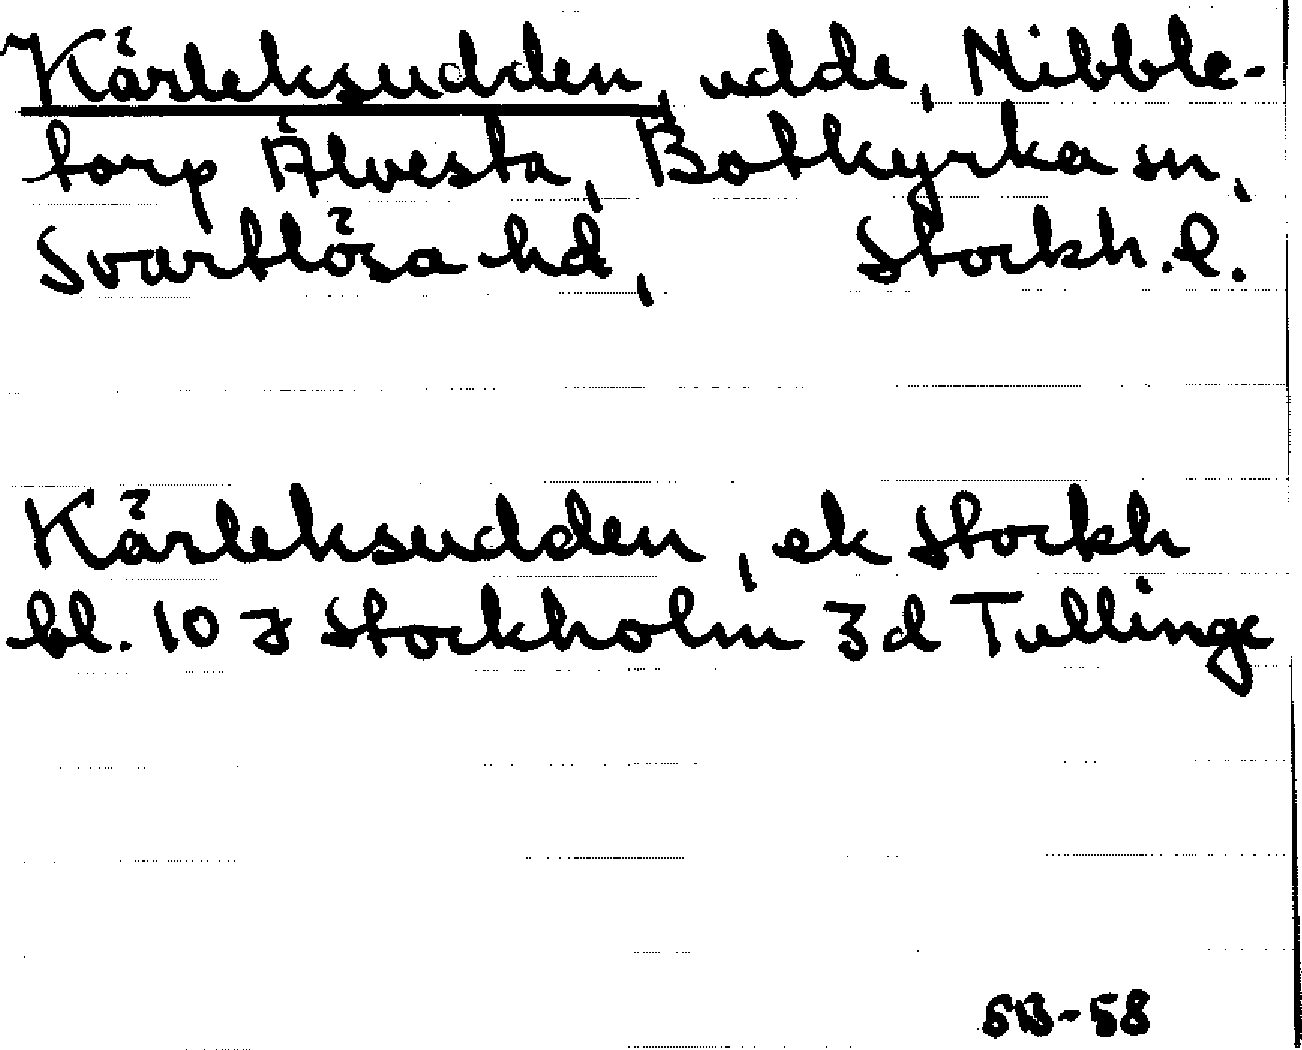 Kärleksudden, udde, Nibble-
torp Älvesta, Botkyrka sn,
Svartlösa hd, Stockh. l.
Kärleksudden, ek Stockh
bl. 10 J Stockholm 3d Tullinge
SB-58